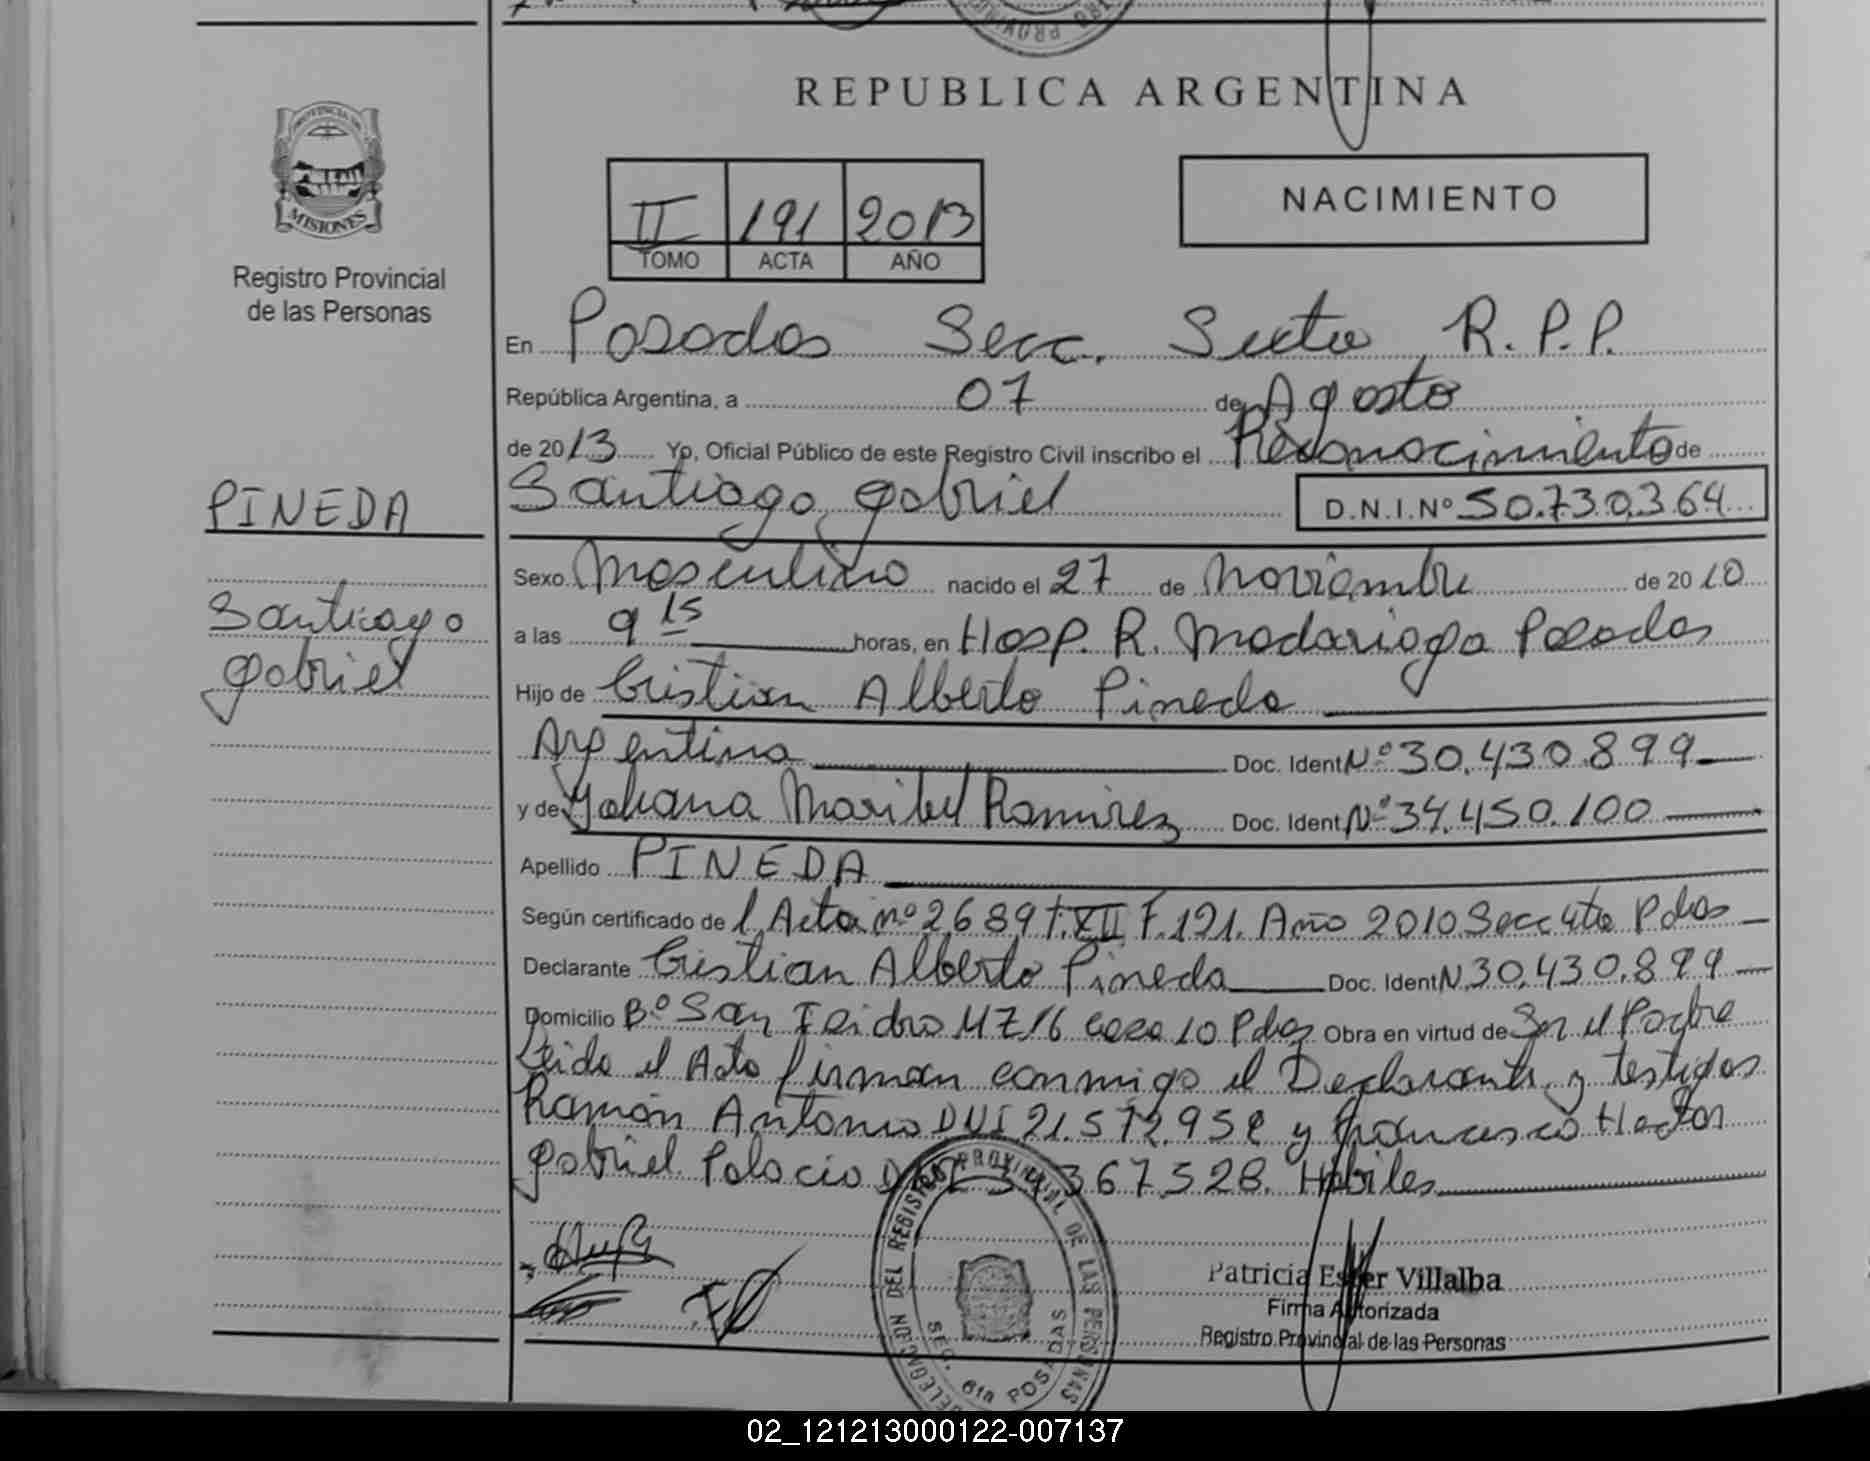 REPUBLICA ARGENTINA
PROVINCIA DE
MISIONES
Registro Provincial
de las Personas
II 191 2013
TOMO ACTA AÑO
NACIMIENTO
En Posadas Secc. Sexta R.P.P.
República Argentina, a 07 de Agosto
de 2013 Yo, Oficial Público de este Registro Civil inscribo el Reconocimiento de
PINEDA
Santiago Gabriel D.N.I.Nº 50.730.364
Sexo Masculino nacido el 27 de Noviembre de 2010
Santiago
Gabriel
a las 9 15 horas, en Hosp. R. Madariaga Posadas
Hijo de Cristian Alberto Pineda
Argentino Doc. Ident Nº 30.430.899
y de Yohana Maribel Ramirez Doc. Ident. Nº 34.450.100
Apellido PINEDA
Según certificado de l Acta nº 2689 t. XII F. 121. Año 2010 Secc 4ta Pdas
Declarante Cristian Alberto Pineda Doc. Ident N 30.430.899
Domicilio Bº San Isidro MZ 16 casa 10 Pdas Obra en virtud de Ser el Padre
Leida el Acta firman conmigo el Declarante y testigos
Ramón Antonio DNI 21.572.952 y Francisco Hector
Gabriel Palacio DNI 367.528. Habiles
DELEGACION DEL REGISTRO PROVINCIAL DE LAS PERSONAS
SEC. 6ta POSADAS
Patricia Ester Villalba
Firma Autorizada
Registro Provincial de las Personas
02_121213000122-007137